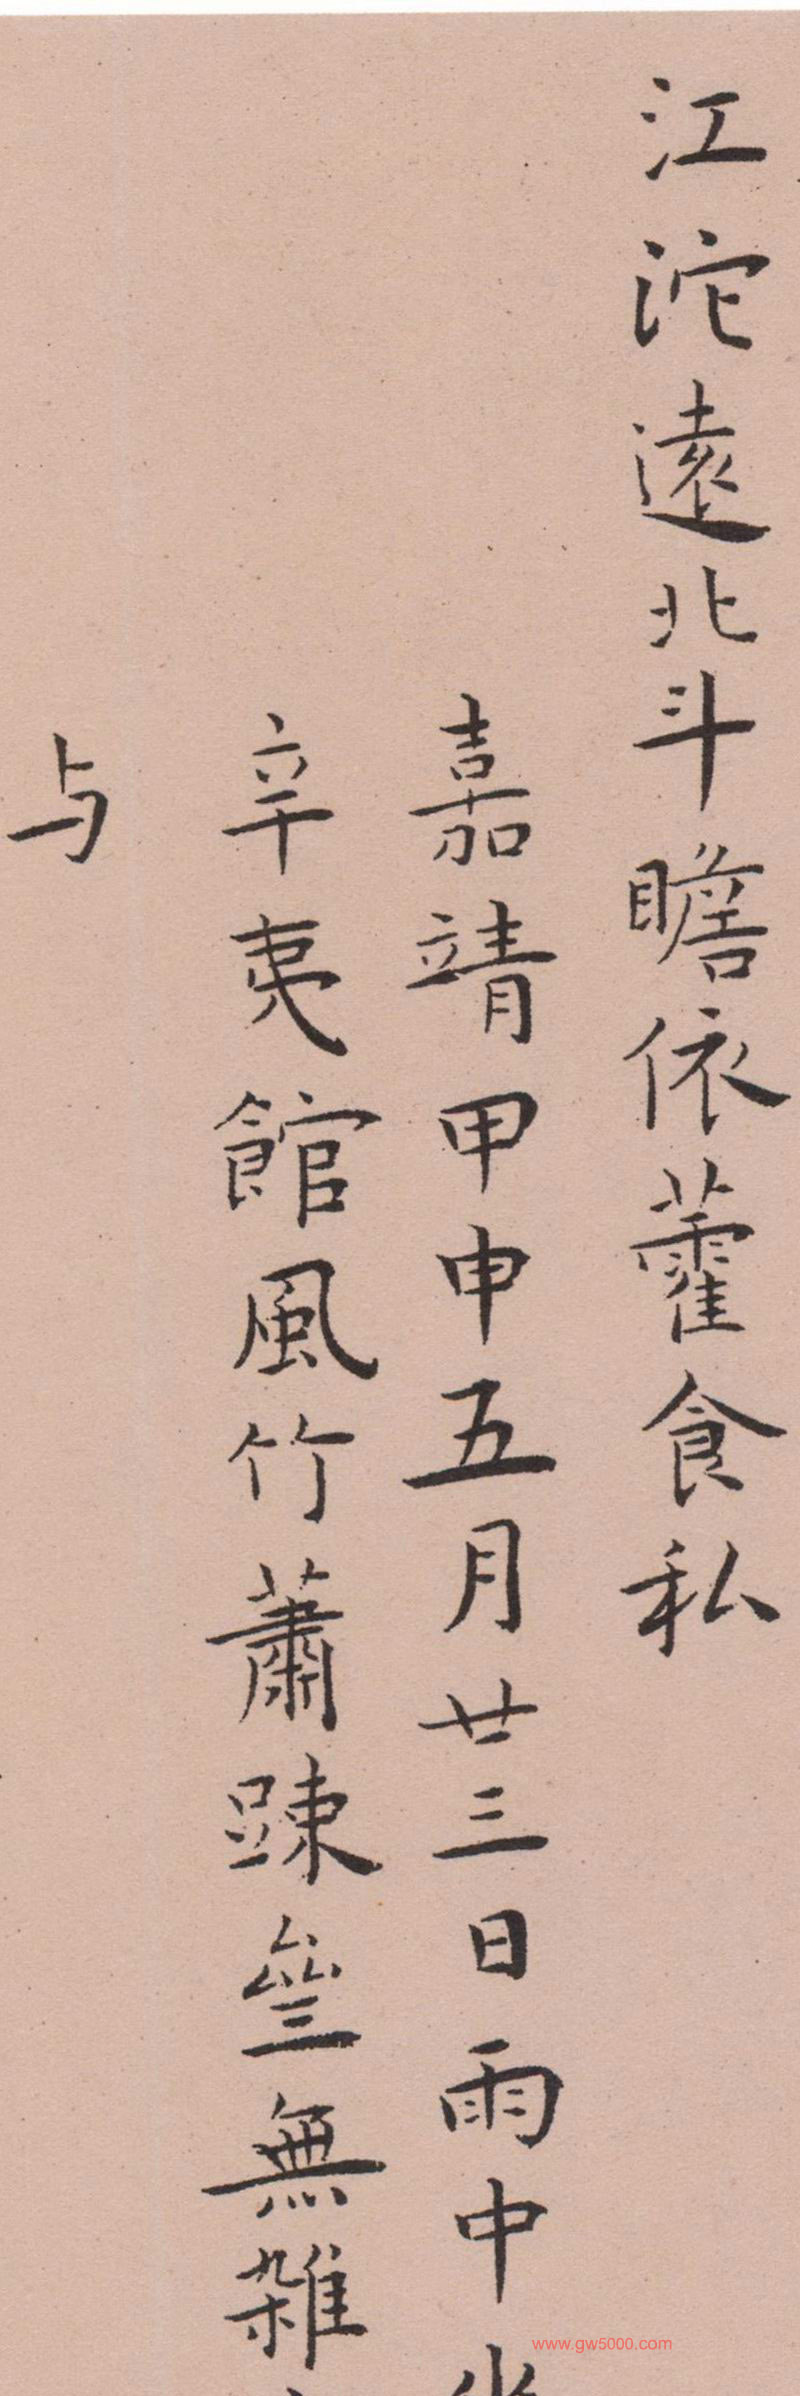 江沱遠北斗瞻依藿食私
嘉靖甲申五月廿三日雨中坐
辛夷館風竹蕭踈叅無雜
与
www.gw5000.com